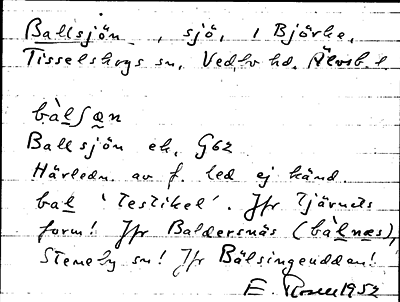 Ballsjön, sjö, i Björke,
Tisselskogs sn, Vedbo hd. Älvsb. l.
bàlʃən
Ballsjön ek. G62
Härledn. av f. led ej känd.
bal 'testikel'. Jfr Tjärnets
form! Jfr Baldersnäs (bàlnæs),
Steneby sn! Jfr Bälsingeudden!
E. 1952